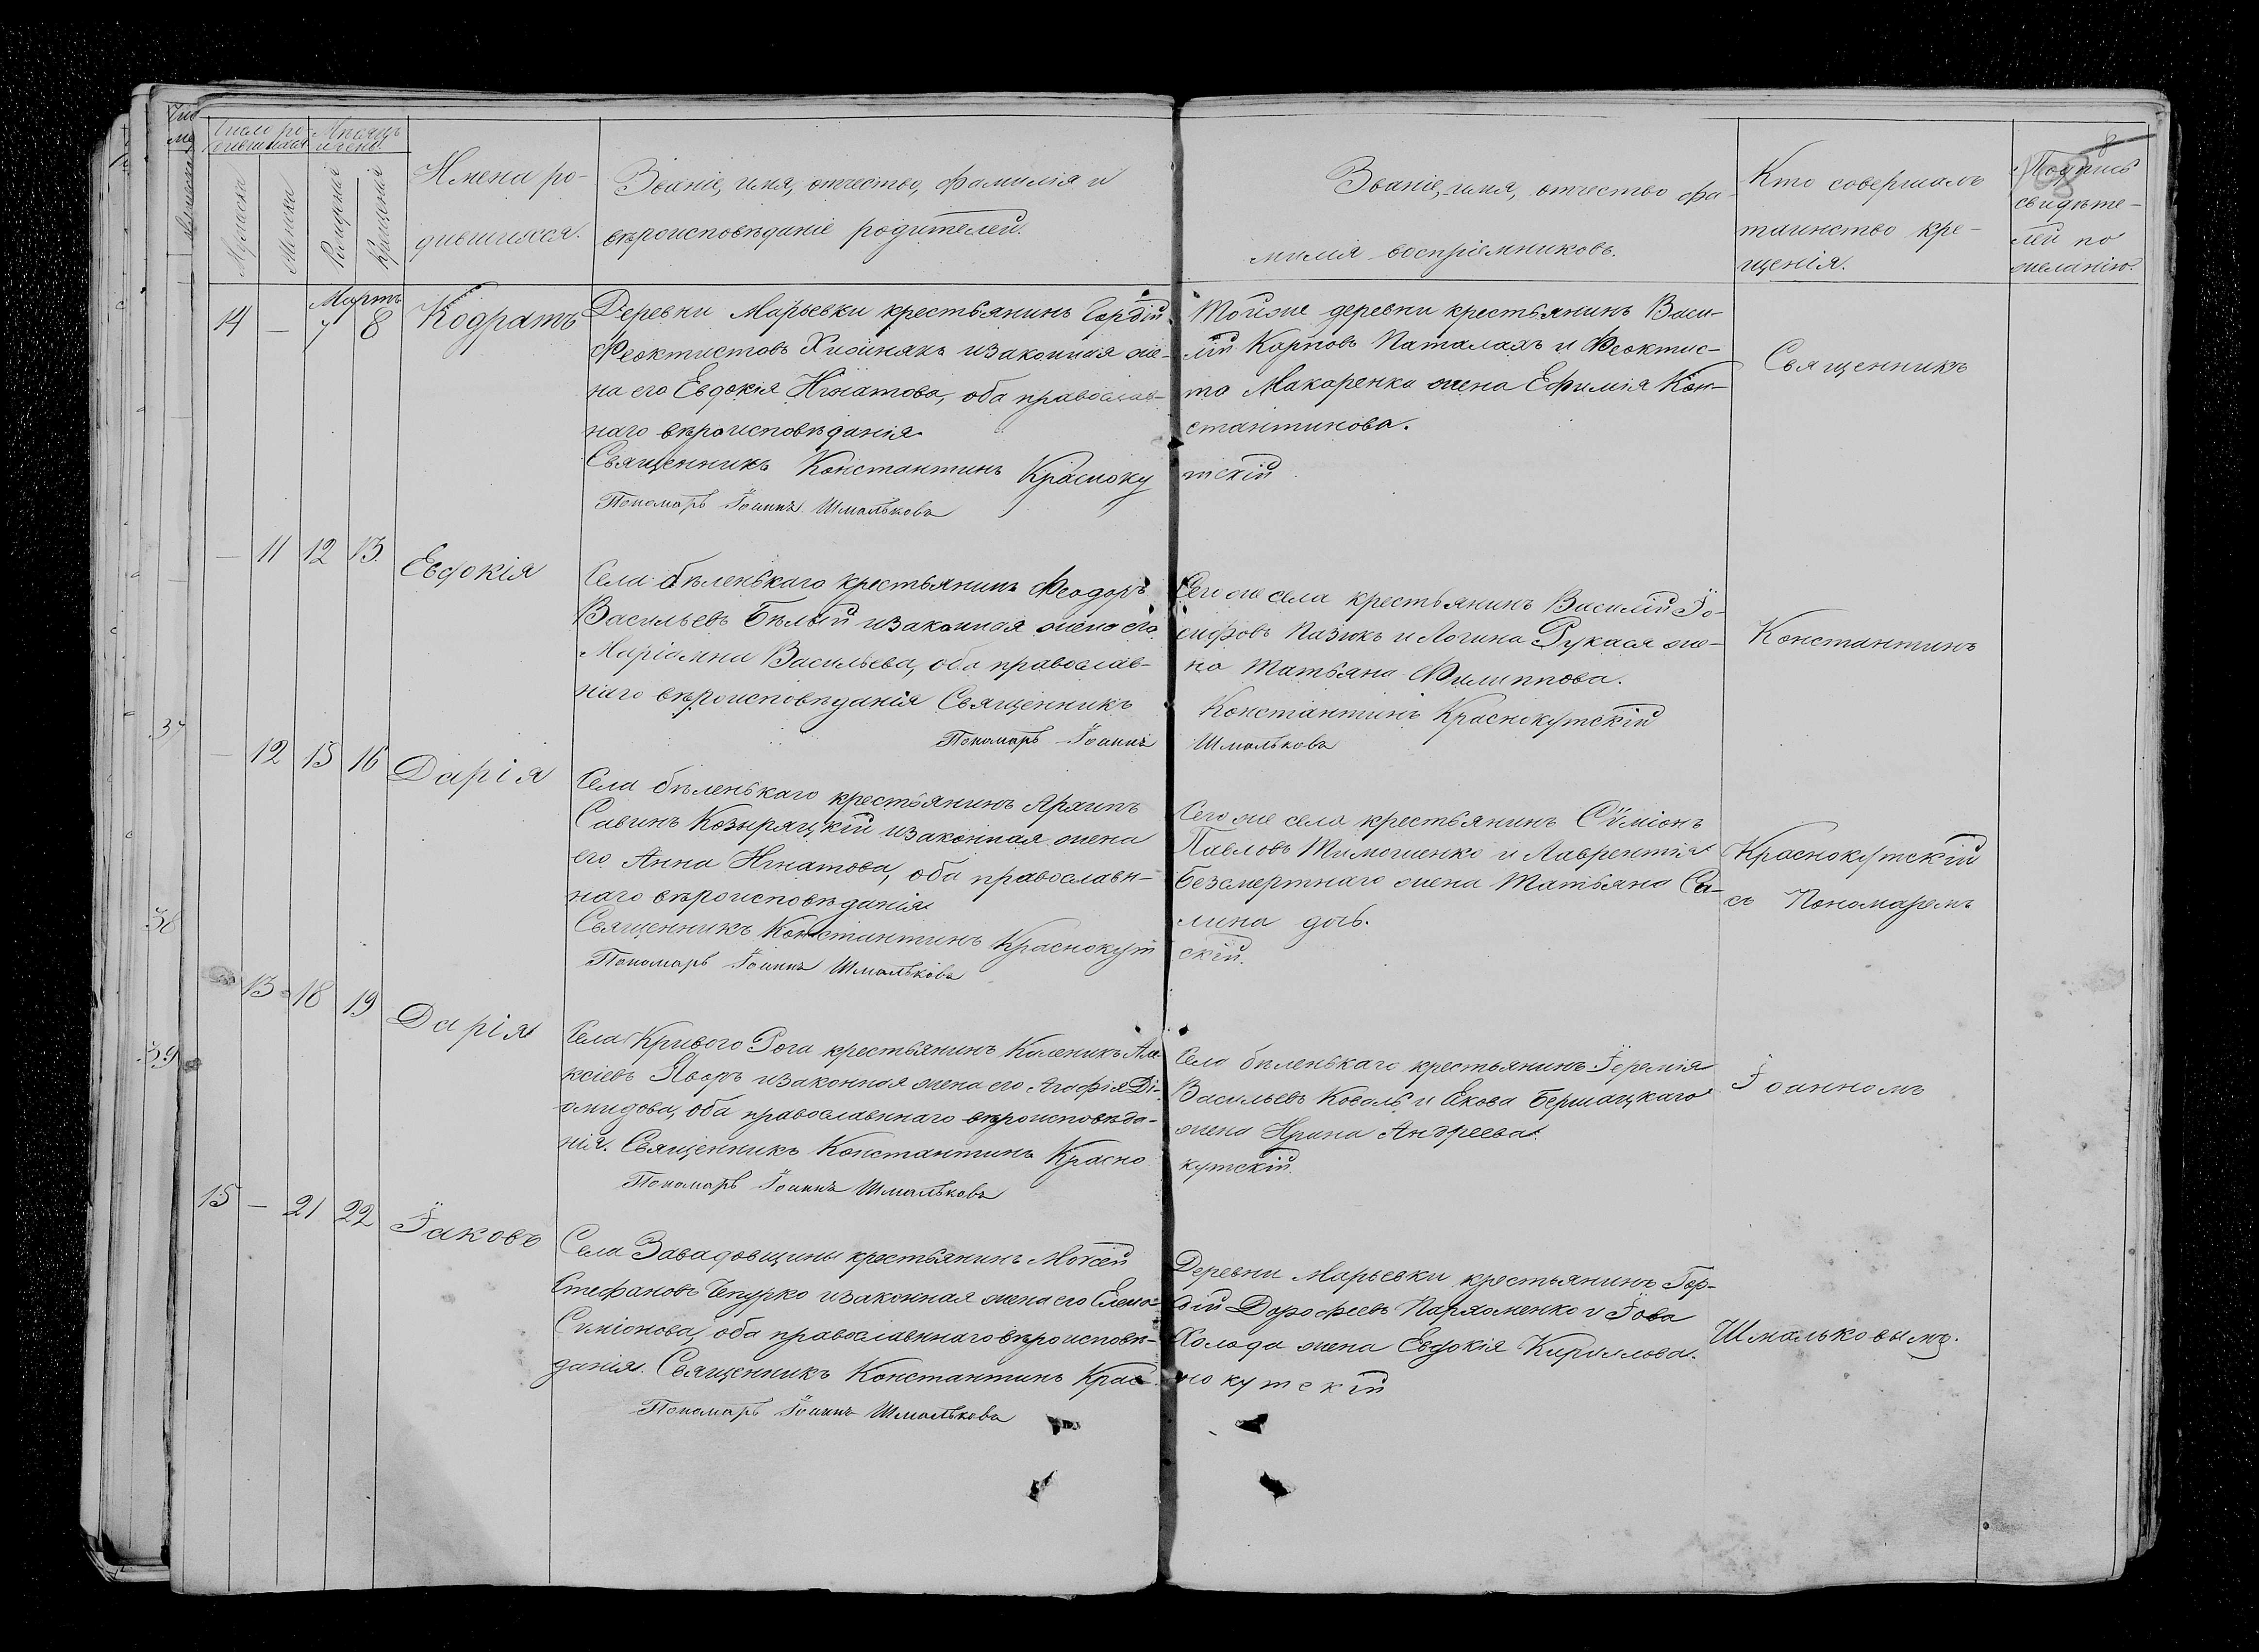 Число ро-
дившихся
Мѣсяцъ
и день.
Мужеска
Женска
Рожденія
Крещенія
Имена ро-
дившихся.
Званіе, имя, отчество, фамилія и
вѣроисповѣданіе родителей.
Званіе, имя, отчество фа-
милия воспріемниковъ.
Кто совершалъ
таинство кре-
щенія.
Подпись
свидѣте-
лей по
желанію.
Мартъ
14 — 7 8 Кодратъ
Деревни Марьевки крестьянинъ Гордій
Феоктистовъ Хижнякъ и законная же-
на его Евдокія Игнатова, оба православ-
наго вѣроисповѣданія
Священникъ Константинъ Краснокутскій
Пономарь Іоаннъ Шмальковъ
Тойже деревни крестьянинъ Васи-
лій Карповъ Паталахъ и Феоктис-
та Макаренка жена Ефимія Кон-
стантинова.
Священникъ
— 11 12 13 Евдокія
Села бѣленькаго крестьянинъ Феодоръ
Васильевъ Бѣлый и законная жена его
Маріамна Васильева, оба православ-
наго вѣроисповѣданія Священникъ Константинъ Краснокутскій
Пономарь Іоаннъ Шмальковъ
Сего же села крестьянинъ Василій Іо-
сифовъ Пазюкъ и Логина Рукася же-
на Татьяна Филиппова.
Константинъ
— 12 15 16 Дарія
Села бѣленькаго крестьянинъ Архипъ
Савинъ Козыряцкій и законная жена
его Анна Игнатова, оба православн-
наго вѣроисповѣданія
Священникъ Константинъ Краснокутскій.
Пономарь Іоаннъ Шмальковъ
Сего же села крестьянинъ Сѵміонъ
Павловъ Тимошенко и Лаврентія
Безсмертнаго жена Татьяна Са-
мина дочь.
Краснокутскій
съ Пономаремъ
13 18 19 Дарія
Села Кривого Рога крестьянинъ Каленикъ Але-
ксіевъ Яворъ и законная жена его Агафія Ді-
омидова, оба православнаго вѣроисповѣда-
нія. Священникъ Константинъ Краснокутскій.
Пономарь Іоаннъ Шмальковъ
Села бѣленькаго крестьянинъ Іеремія
Васильевъ Коваль и Якова Бершацкаго
жена Ирина Андреева.
Іоанномъ
15 — 21 22 Іаковъ
Села Завадовщины крестьянинъ Моѵсей
Стефановъ Чепурко и законная жена его Елена
Симіонова, оба православнаго вѣроисповѣ-
данія. Священникъ Константинъ Краснокутскій
Пономарь Іоаннъ Шмальковъ
Деревни Марьевки крестьянинъ Гор-
дій Дорофеевъ Пархоменко и Іова
Холода жена Евдокія Кириллова.
Шмальковымъ.
37
38
39